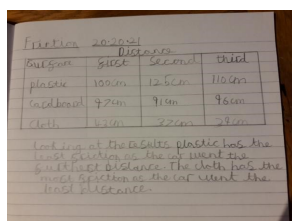 Friction 20.20.21
Distance
Surface first second third
plastic 100cm 126cm 110cm
cardboard 97cm 91cm 96cm
cloth 37cm
Looking at the results plastic has the
least friction as the car went the
furthest distance. The cloth has the
most friction as the car went the
least distance.